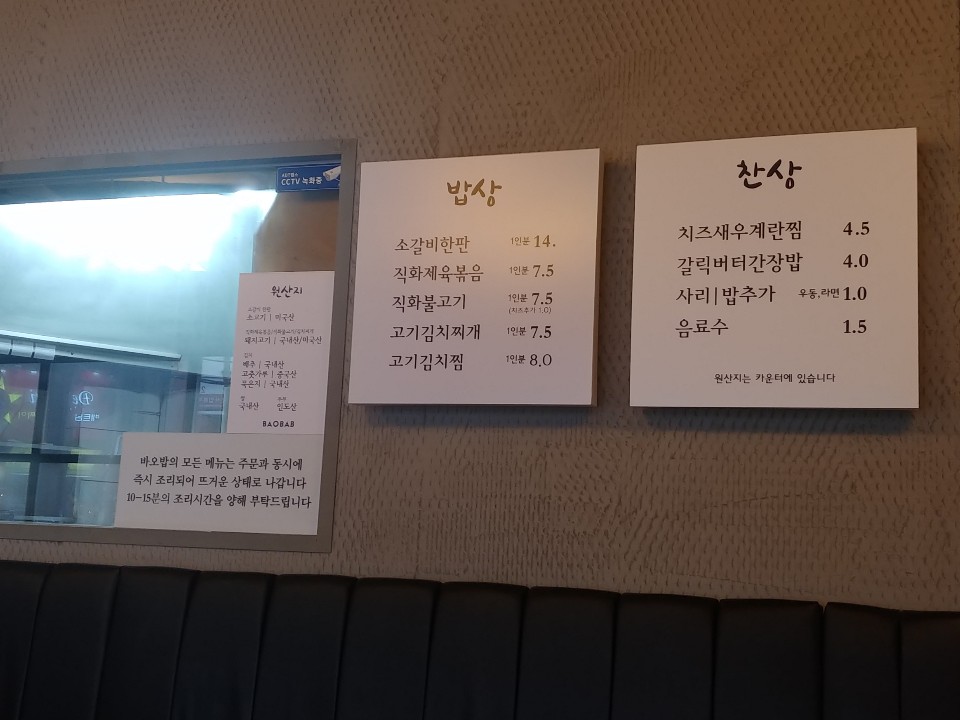 CCTV 녹화중
원산지
소고기 | 미국산
돼지고기 | 국내산/미국산
배추 | 국내산
고춧가루 | 중국산
묵은지 | 국내산
쌀
국내산
인도산
BAOBAB
바오밥의 모든 메뉴는 주문과 동시에
즉시 조리되어 뜨거운 상태로 나갑니다
10-15분의 조리시간을 양해 부탁드립니다
밥상
소갈비한판 1인분 14.
직화제육볶음 1인분 7.5
직화불고기 1인분 7.5
(치즈추가 1.0)
고기김치찌개 1인분 7.5
고기김치찜 1인분 8.0
찬상
치즈새우계란찜 4.5
갈릭버터간장밥 4.0
사리|밥추가 우동,라면 1.0
음료수 1.5
원산지는 카운터에 있습니다